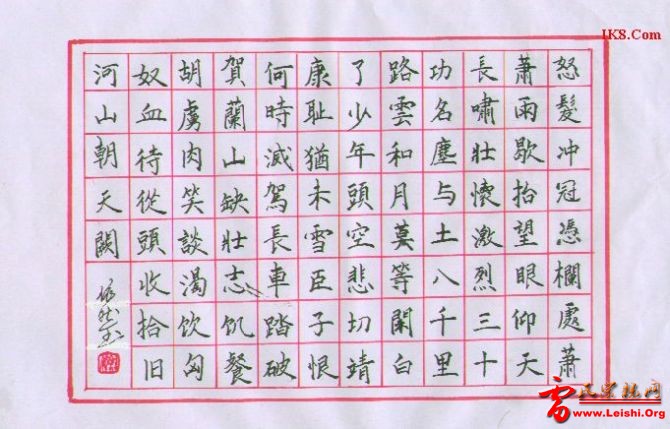 怒髮冲冠憑欄處蕭
蕭雨歇抬望眼仰天
長嘯壯懷激烈三十
功名塵与土八千里
路雲和月莫等閑白
了少年頭空悲切靖
康耻猶未雪臣子恨
何時滅駕長車踏破
賀蘭山缺壯志飢餐
胡虜肉笑談渴饮匈
奴血待從頭收拾旧
河山朝天闕
IK8.Com
www.Leishi.Org